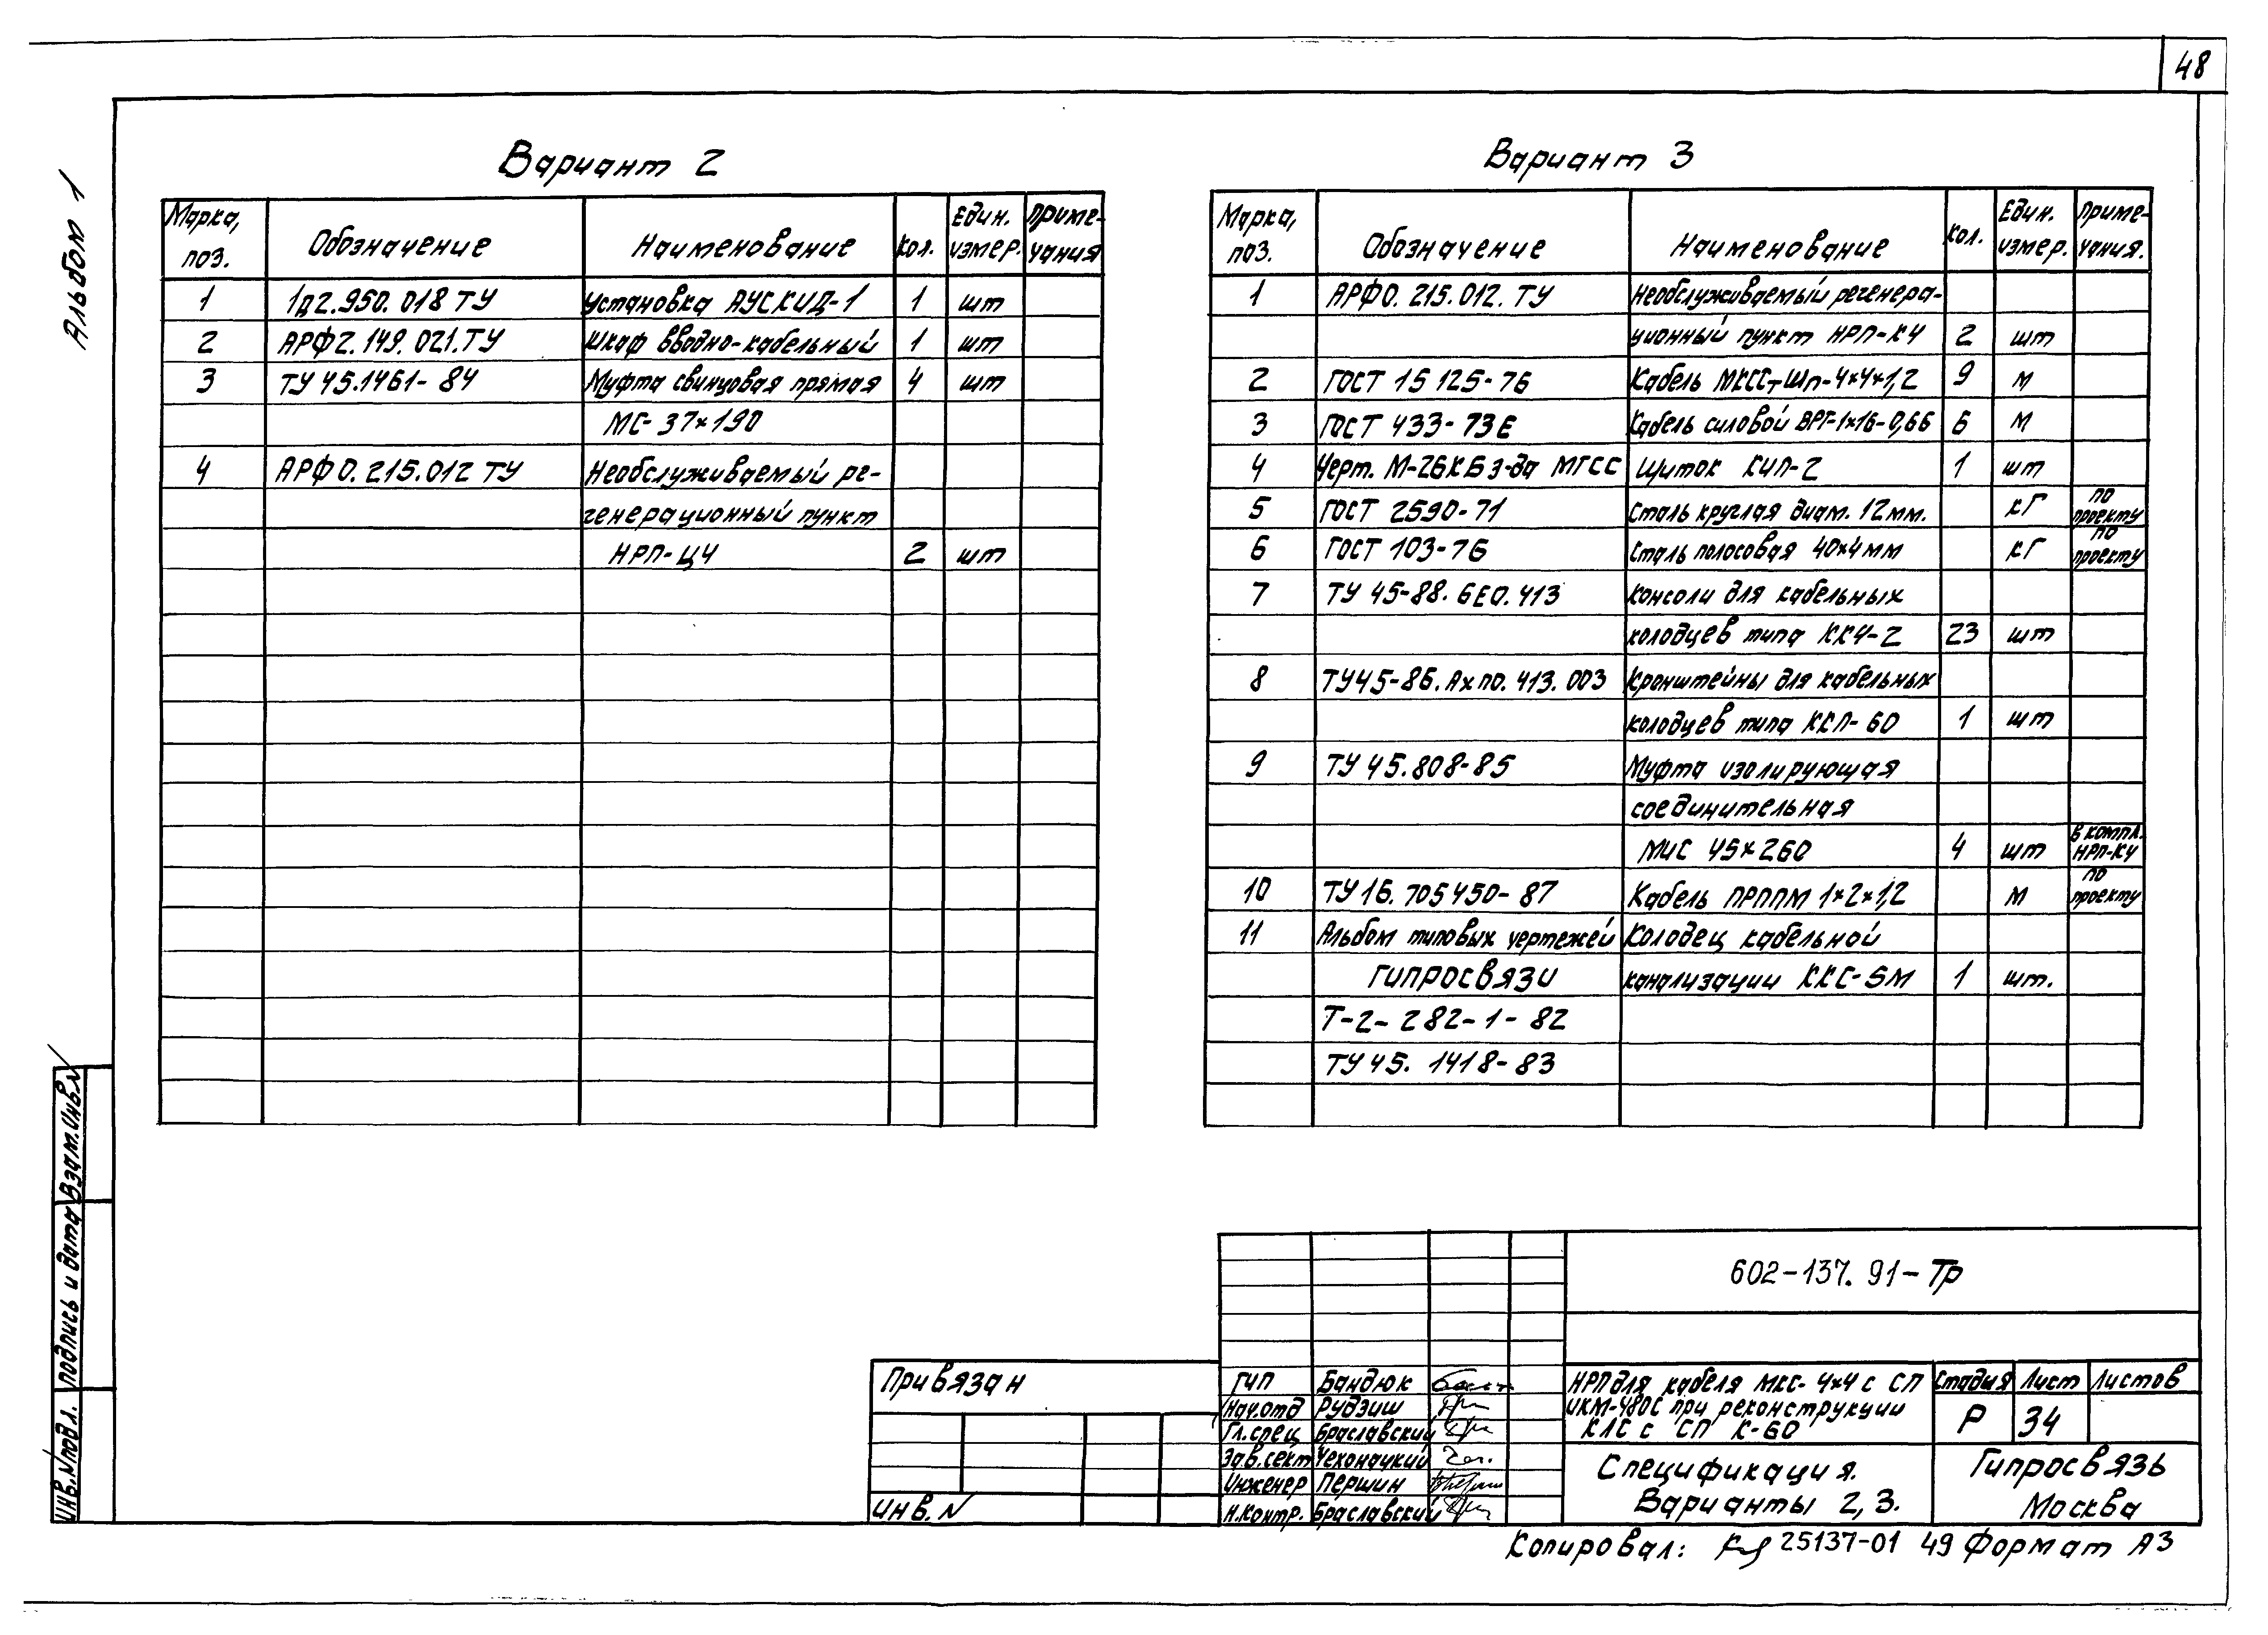 48
Альбом 1
Вариант 2
Марка, поз. Обозначение Наименование Кол. Един. измер. Приме-чания
1 1д2.950.018 ТУ Установка АУСКИД-1 1 шт
2 АРФ2.149.021.ТУ Шкаф вводно-кабельный 1 шт
3 ТУ 45.1461-84 Муфта свинцовая прямая 4 шт
МС-37×190
4 АРФ0.215.012 ТУ Необслуживаемый ре-
генерационный пункт
НРП-Ц4 2 шт
Вариант 3
Марка, поз. Обозначение Наименование Кол. Един. измер. Приме-чания.
1 АРФ0.215.012.ТУ Необслуживаемый регенера-
ционный пункт НРП-К4 2 шт
2 ГОСТ 15125-76 Кабель МКССтШп-4×4×1,2 9 м
3 ГОСТ 433-73Е Кабель силовой ВРГ-1×16-0,66 6 м
4 Черт. М-26КБ з-да МГСС Щиток КИП-2 1 шт
5 ГОСТ 2590-71 Сталь круглая диам. 12мм. кг по проекту
6 ГОСТ 103-76 Сталь полосовая 40×4мм кг по проекту
7 ТУ 45-88.6Е0.413 Консоли для кабельных
колодцев типа ККЧ-2 23 шт
8 ТУ45-86.Ахп0.413.003 Кронштейны для кабельных
колодцев типа ККП-60 1 шт
9 ТУ 45.808-85 Муфта изолирующая
соединительная
МИС 45×260 4 шт в компл. НРП-К4
10 ТУ16.705450-87 Кабель ПРППМ 1×2×1,2 м по проекту
11 Альбом типовых чертежей Колодец кабельной
Гипросвязи канализации ККС-5М 1 шт.
Т-2-282-1-82
ТУ45.1418-83
Взам.инв.№
Подпись и дата
Инв.№подл.
602-137.91-Тр
Привязан
Инв.№
ГИП Бандюк
Нач.отд Рудзиш
Гл.спец Браславский
Зав.сект Чехонацкий
Инженер Першин
Н.контр. Браславский
НРП для кабеля МКС-4×4 с СП
ИКМ-480С при реконструкции
КЛС с СП К-60
Стадия Лист Листов
Р 34
Спецификация.
Варианты 2, 3.
Гипросвязь
Москва
Копировал: 25137-01 49 Формат А3